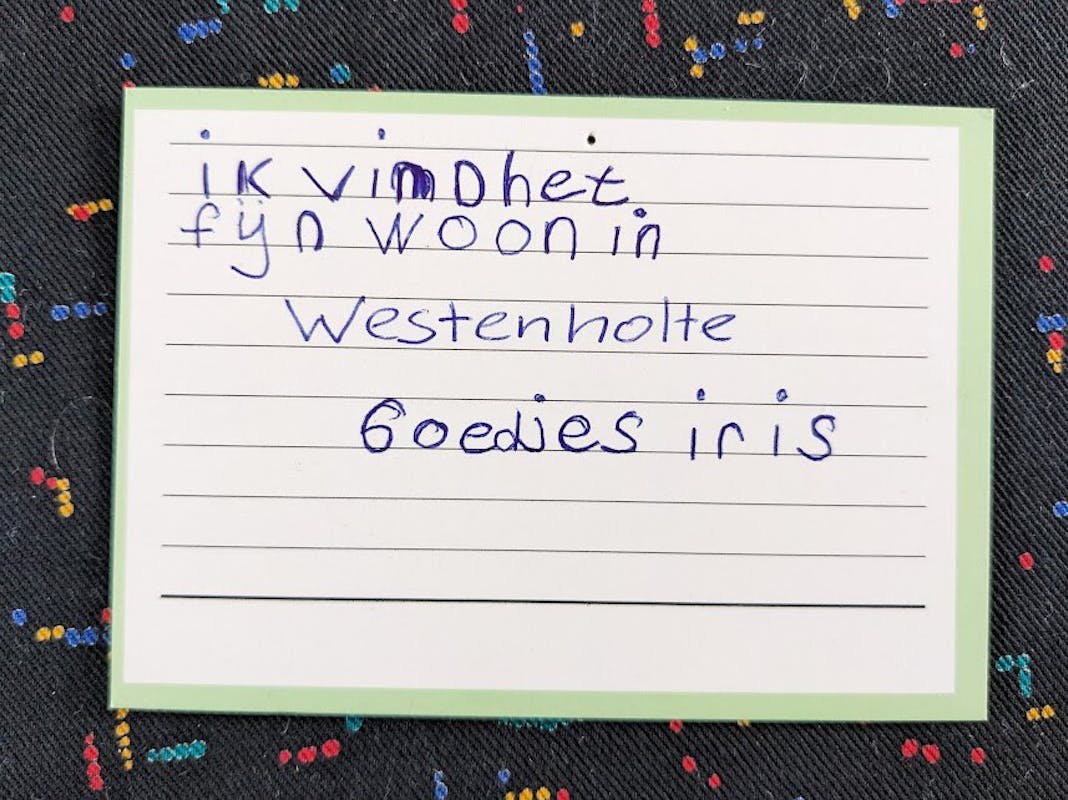 ik vind het
fijn woon in
Westenholte
Goedjes iris